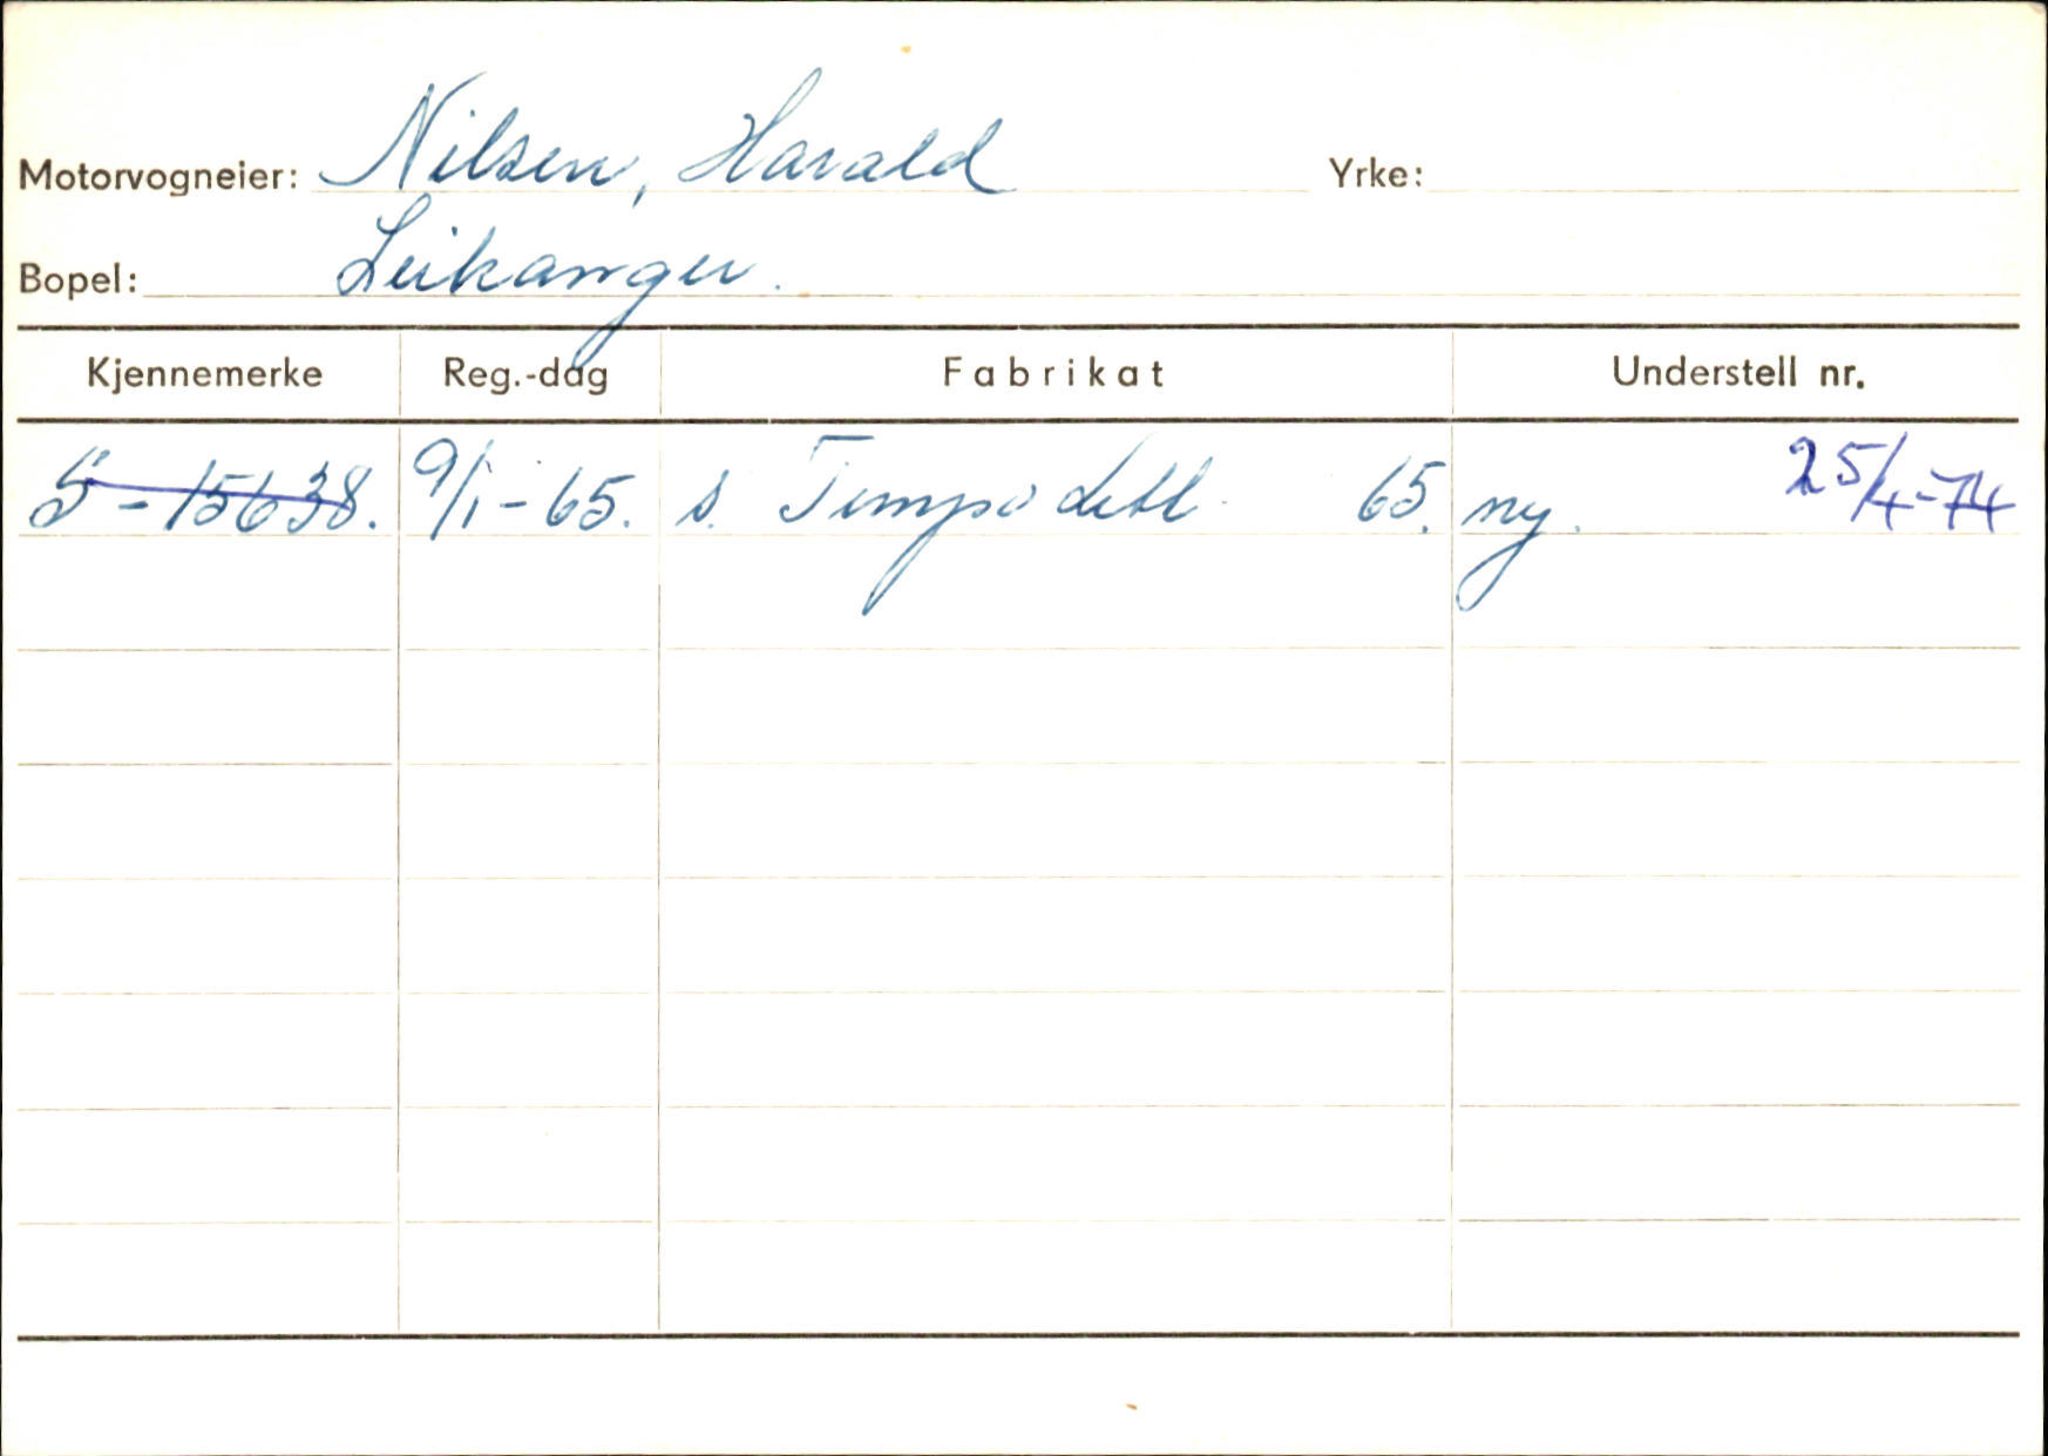 Motorvogneier: Nilsen, Harald Yrke:
Bopel: Leikanger.
Kjennemerke Reg.-dag Fabrikat Understell nr.
S-15638. 9/1-65. s. Tempo Lett 65. ny. 25/4-74